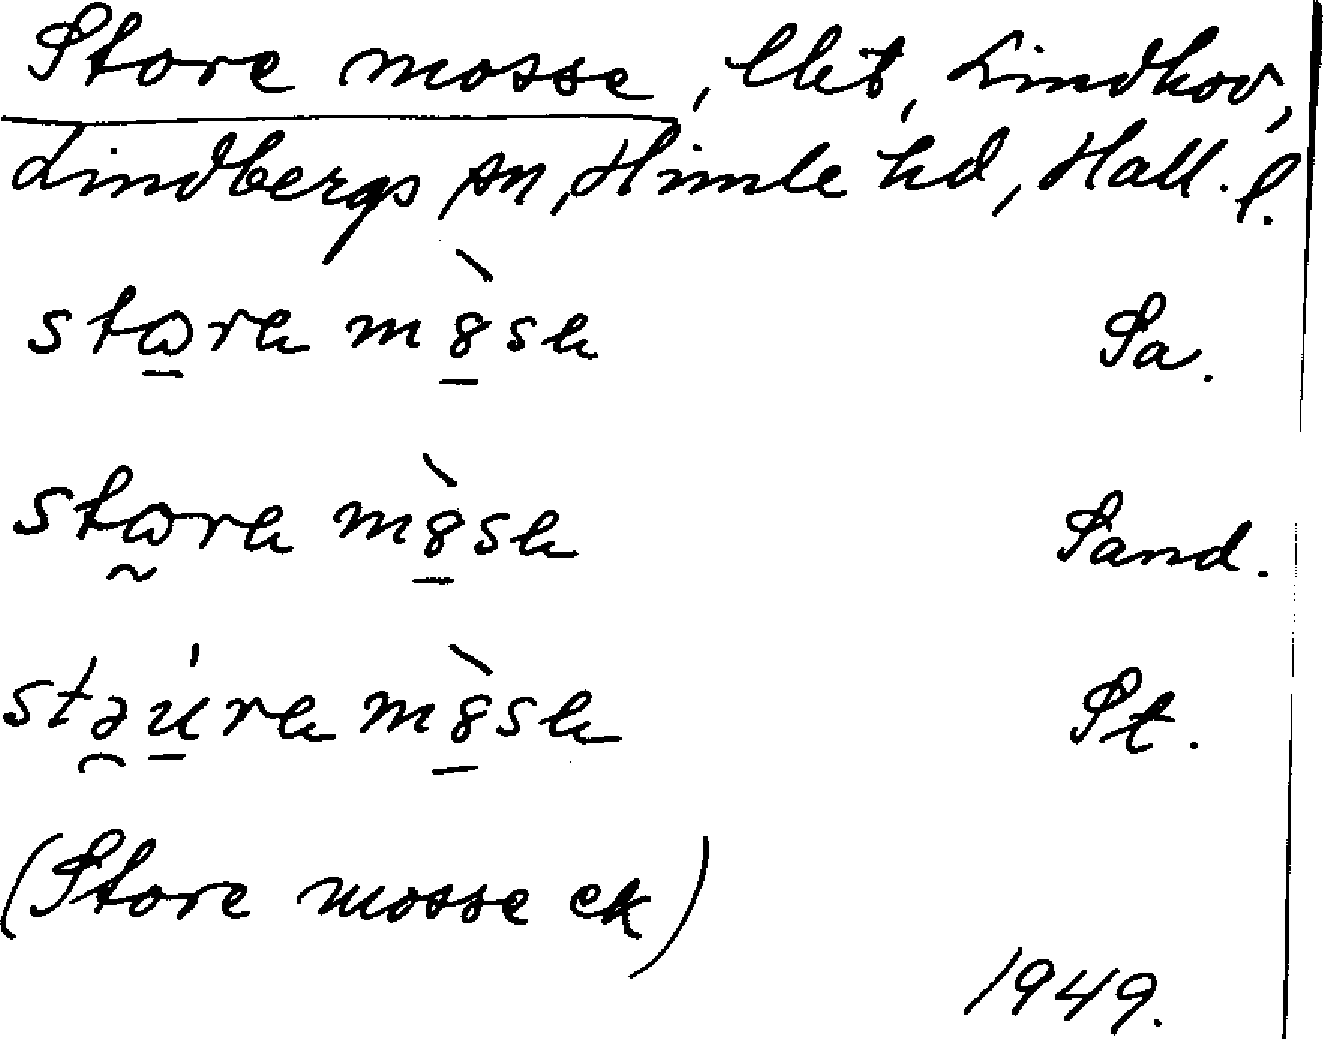 Store mosse, lht, Lindhov,
Lindbergs sn, Himle hd, Hall. l.
stɷ̠re mö̠̀se Sa.
stɷ̰re m8̠̀se Sand.
stə̯u̠̍re m8̠̀se St.
(Store mosse ek)
1949.